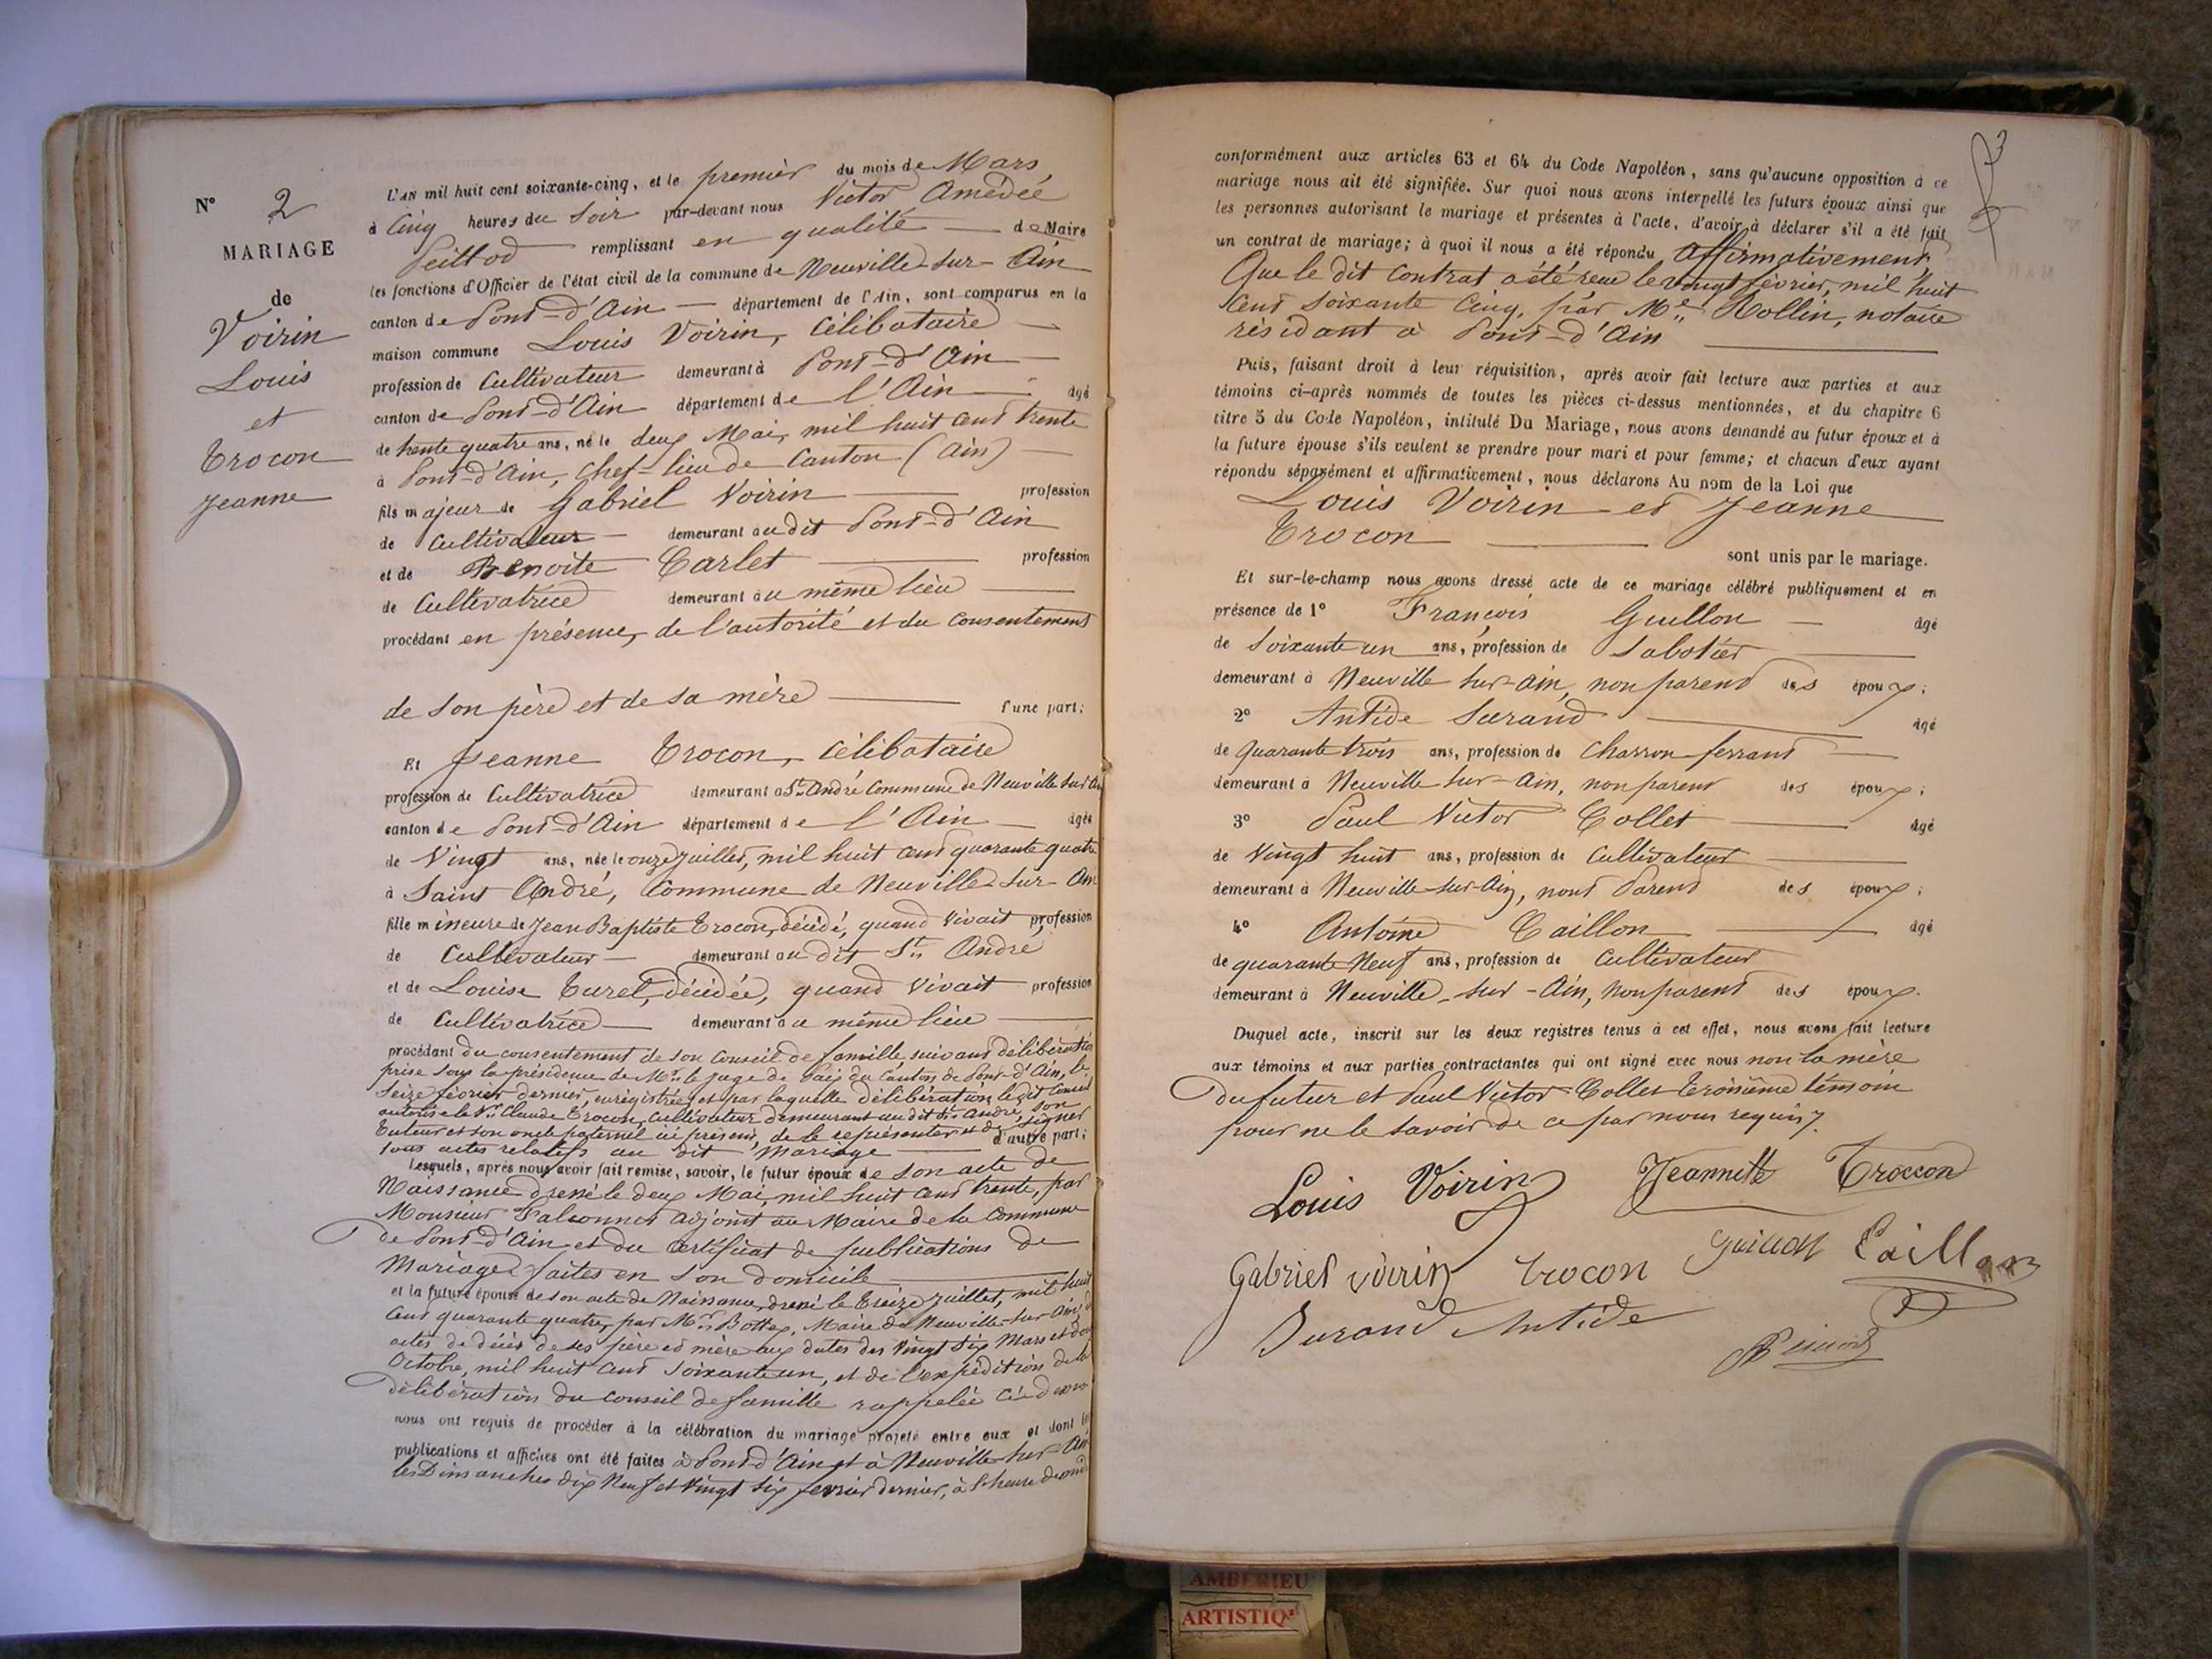 N° 2
MARIAGE
de
Voirin
Louis
et
Trocon
Jeanne
L'AN mil huit cent soixante-cinq, et le premier du mois de Mars
à Cinq heures du Soir par-devant nous Victor Amédée
remplissant en qualité de Maire
les fonctions d'Officier de l'état civil de la commune de Neuville-sur-Ain
canton de Pont-d'Ain département de l'Ain, sont comparus en la
maison commune Louis Voirin, Célibataire
profession de Cultivateur demeurant à Pont-d'Ain
canton de Pont-d'Ain département de l'Ain âgé
de trente quatre ans, né le deux Mai, mil huit cent trente
à Pont-d'Ain, Chef-lieu de Canton (Ain)
fils majeur de Gabriel Voirin profession
de Cultivateur demeurant au dit Pont-d'Ain
et de Benoite Carlet profession
de Cultivatrice demeurant au même lieu
procédant en présence, de l'autorité et du consentement
de son père et de sa mère d'une part;
Et Jeanne Trocon, Célibataire
profession de Cultivatrice demeurant à St André Commune de Neuville sur Ain
canton de Pont-d'Ain département de l'Ain âgée
de Vingt ans, née le onze Juillet, mil huit cent quarante quatre
à Saint André, Commune de Neuville-sur-Ain
fille mineure de Jean Baptiste Trocon, décédé, quand vivait profession
de Cultivateur demeurant au dit St André
et de Louise Turel, décédée, quand vivait profession
de Cultivatrice demeurant au même lieu
procédant du consentement de son Conseil de famille suivant délibération
prise sous la présidence de Mr le Juge de Paix du Canton de Pont-d'Ain, le
Seize février dernier, enregistrée et par laquelle délibération le dit Conseil
autorise le Sr Claude Trocon, Cultivateur demeurant au dit St André, son
Tuteur et son oncle paternel ici présent, de le représenter et de signer
tous actes relatifs au dit Mariage d'autre part;
Lesquels, après nous avoir fait remise, savoir, le futur époux de son acte de
Naissance dressé le deux Mai, mil huit cent trente, par
Monsieur Falconnet adjoint au Maire de la Commune
de Pont-d'Ain et du Certificat de publications de
Mariage faites en son domicile
et la future épouse de son acte de Naissance, dressé le treize Juillet, mil huit
cent quarante quatre, par Mr Bottex, Maire de Neuville-sur-Ain,
actes de décès de ses père et mère aux dates des Vingt Six Mars et
Octobre, mil huit cent soixante un, et de l'expédition de la
délibération du Conseil de famille rappelée
nous ont requis de procéder à la célébration du mariage projeté entre eux et dont les
publications et affiches ont été faites à Pont-d'Ain et à Neuville-sur-Ain
les Dimanches dix Neuf et Vingt Six février dernier, à l'heure de midi
conformément aux articles 63 et 64 du Code Napoléon, sans qu'aucune opposition à ce
mariage nous ait été signifiée. Sur quoi nous avons interpellé les futurs époux ainsi que
les personnes autorisant le mariage et présentes à l'acte, d'avoir à déclarer s'il a été fait
un contrat de mariage; à quoi il nous a été répondu affirmativement
Que le dit Contrat a été reçu le vingt février, mil huit
Cent Soixante Cinq, par Me Rollin, notaire
résidant à Pont-d'Ain
Puis, faisant droit à leur réquisition, après avoir fait lecture aux parties et aux
témoins ci-après nommés de toutes les pièces ci-dessus mentionnées, et du chapitre 6
titre 5 du Code Napoléon, intitulé Du Mariage, nous avons demandé au futur époux et à
la future épouse s'ils veulent se prendre pour mari et pour femme; et chacun d'eux ayant
répondu séparément et affirmativement, nous déclarons Au nom de la Loi que
Louis Voirin et Jeanne
Trocon
sont unis par le mariage.
Et sur-le-champ nous avons dressé acte de ce mariage célébré publiquement et en
présence de 1° François Guillon âgé
de Soixante un ans, profession de Sabotier
demeurant à Neuville-sur-Ain, non parent des époux;
2° Antide Durand âgé
de Quarante trois ans, profession de Charron-ferrant
demeurant à Neuville-sur-Ain, non parent des époux;
3° Paul Victor Collet âgé
de Vingt huit ans, profession de Cultivateur
demeurant à Neuville-sur-Ain, non Parent des époux;
4° Antoine Caillon âgé
de quarante Neuf ans, profession de Cultivateur
demeurant à Neuville-sur-Ain, non parent des époux.
Duquel acte, inscrit sur les deux registres tenus à cet effet, nous avons fait lecture
aux témoins et aux parties contractantes qui ont signé avec nous non la mère
du futur et Paul Victor Collet troisième témoin
pour ne le savoir de ce par nous requis.
Louis Voirin Jeannette Troccon
Gabriel voirin trocon Guillon Caillon
Durand Antide
AMBERIEU
ARTISTIQ